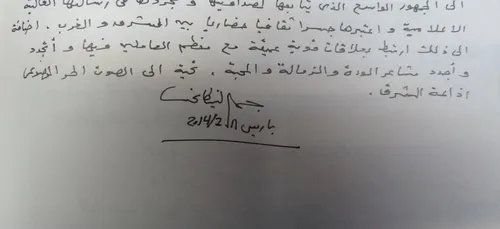 الى الجمهور الواسع الذي يتابعها لصداقيتها و تجردها في رسالتها العالية
الاعلامية و اعتبرها جسراً ثقافياً حضارياً بين المشرق و الغرب. اضافة
الى ذلك ارتبط بعلاقات قوية عميقة مع معظم العاملين فيها و أجدد
و أجدد مشاعر المودة والزمالة و المحبة. تحية الى الصوت الحر
اذاعة الشرق.
باريس ٨/2/2014